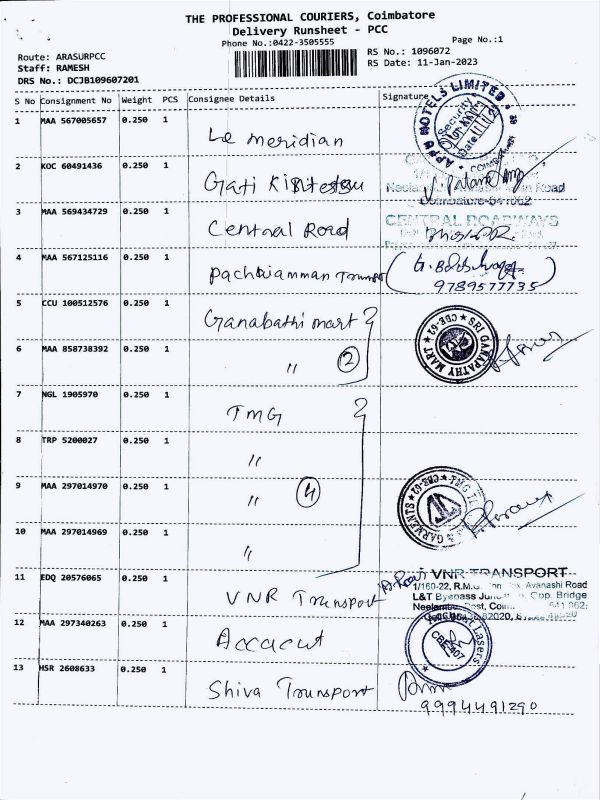 THE PROFESSIONAL COURIERS, Coimbatore
Delivery Runsheet - PCC
Phone No.:0422-3505555
Page No.:1
Route: ARASURPCC
Staff: RAMESH
DRS No.: DCJB109607201
RS No.: 1096072
RS Date: 11-Jan-2023
S No Consignment No Weight PCS Consignee Details Signature
1 MAA 567005657 0.250 1 Le meridian
APPU HOTELS LIMITED
Security
Date
2 KOC 60491436 0.250 1 Gati
Road
Coimbatore-641062
3 MAA 569434729 0.250 1 Central Road
CENTRAL ROADWAYS
4 MAA 567125116 0.250 1 Pachaiamman Transport
9789577735
5 CCU 100512576 0.250 1 Ganabathi mart
SRI GANAPATHY MART ★ CBE-62 ★
6 MAA 858738392 0.250 1 〃 2
7 NGL 1905970 0.250 1 TMG
8 TRP 5200027 0.250 1 〃
9 MAA 297014970 0.250 1 〃 4
TMG
& GARMENTS ★ CBE-62 ★
10 MAA 297014969 0.250 1 〃
11 EDQ 20576065 0.250 1 VNR Transport
VNR TRANSPORT
1/160-22, R.M.G. Avanashi Road
L&T Byepass Opp. Bridge
Post, 641 062
12 MAA 297340263 0.250 1 Accacut
Lasers
CBE-407
13 HSR 2608633 0.250 1 Shiva Transport
9994491290